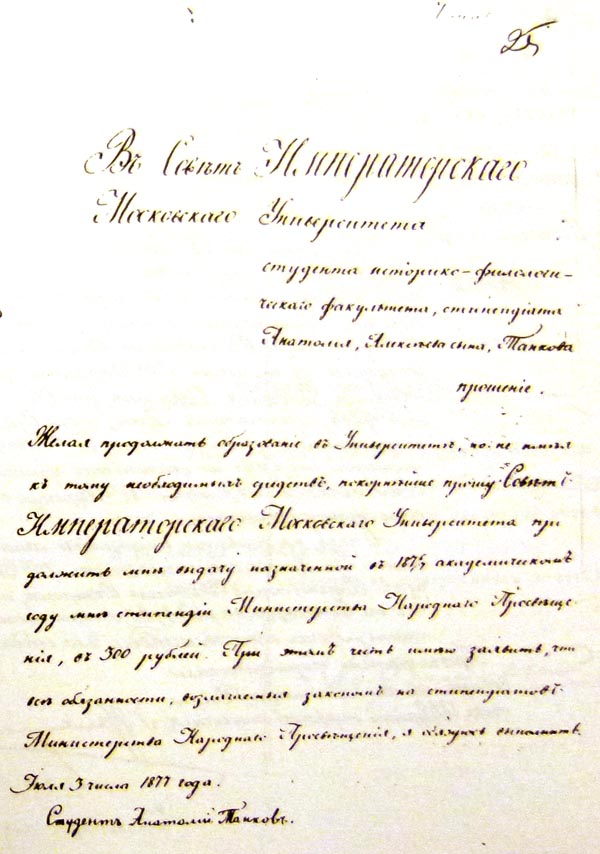 25
Въ Совѣтъ Императорскаго
Московскаго Университета
студента историко-филологи-
ческаго факультета, стипендіата
Анатолія, Алексѣева сына, Танкова
прошеніе.
Желая продолжать образованіе въ Университетѣ, но не имѣя
къ тому необходимыхъ средствъ, покорнѣйше прошу Совѣтъ
Императорскаго Московскаго Университета про
должить мнѣ выдачу назначенной въ 1876/7 академическомъ
году мнѣ стипендіи Министерства Народнаго Просвѣще-
нія, въ 300 рублей. При этомъ честь имѣю заявить, что
всѣ обязанности, возлагаемыя закономъ на стипендіатовъ
Министерства Народнаго Просвѣщенія, я обязуюсь выполнить.
Іюля 3 числа 1877 года.
Студентъ Анатолій Танковъ.